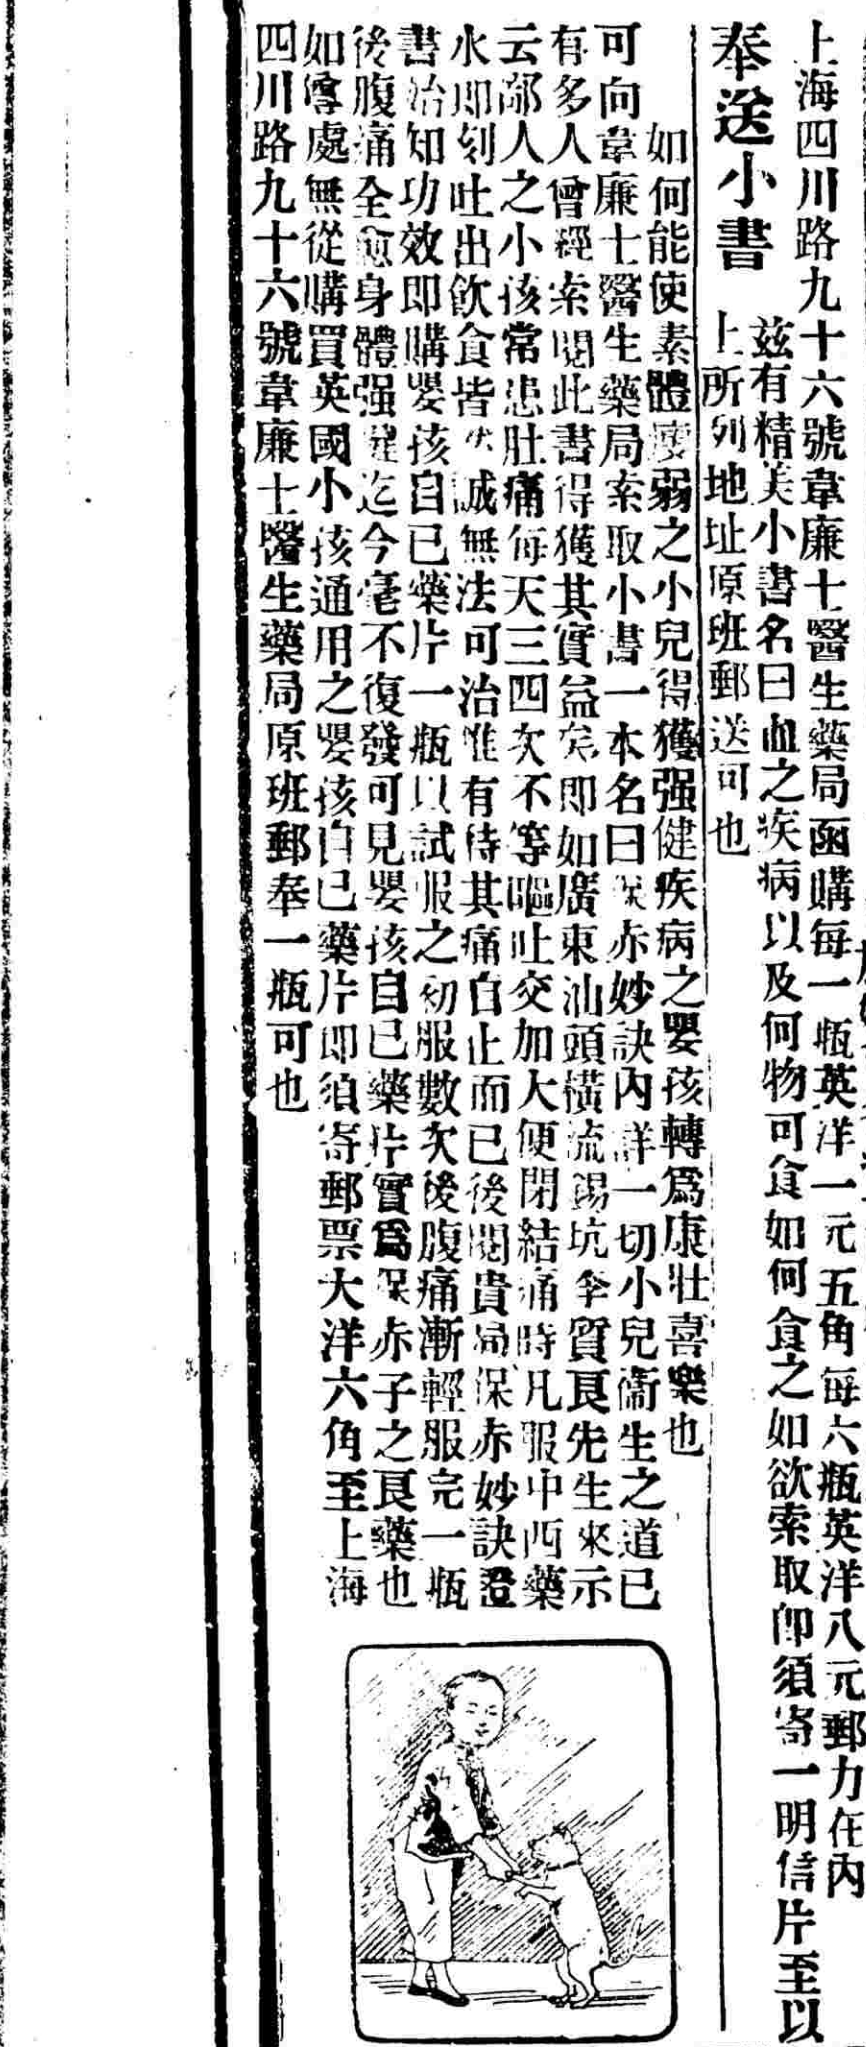 上海四川路九十六號韋廉士醫生藥局函購每一瓶英洋一元五角每六瓶英洋八元郵力在內
奉送小書
茲有精美小書名曰血之疾病以及何物可食如何食之如欲索取卽須寄一明信片至以
上所列地址原班郵送可也
如何能使素體弱之小兒得獲强健疾病之嬰孩轉爲康壯喜樂也
可向韋廉士醫生藥局索取小書一本名曰保赤妙訣內詳一切小兒衞生之道已
有多人曾經索閱此書得獲其實益矣卽如廣東汕頭橫流錫坑李質良先生來示
云鄙人之小孩常患肚痛每天三四次不等嘔吐交加大便閉結痛時凡服中西藥
水卽刻吐出飲食皆然誠無法可治惟有待其痛自止而已後閱貴局保赤妙訣證
書治知功效卽購嬰孩自己藥片一瓶以試服之初服數次後腹痛漸輕服完一瓶
後腹痛全愈身體强健迄今毫不復發可見嬰孩自己藥片實爲保赤子之良藥也
如尊處無從購買英國小孩通用之嬰孩自己藥片卽須寄郵票大洋六角至上海
四川路九十六號韋廉士醫生藥局原班郵奉一瓶可也